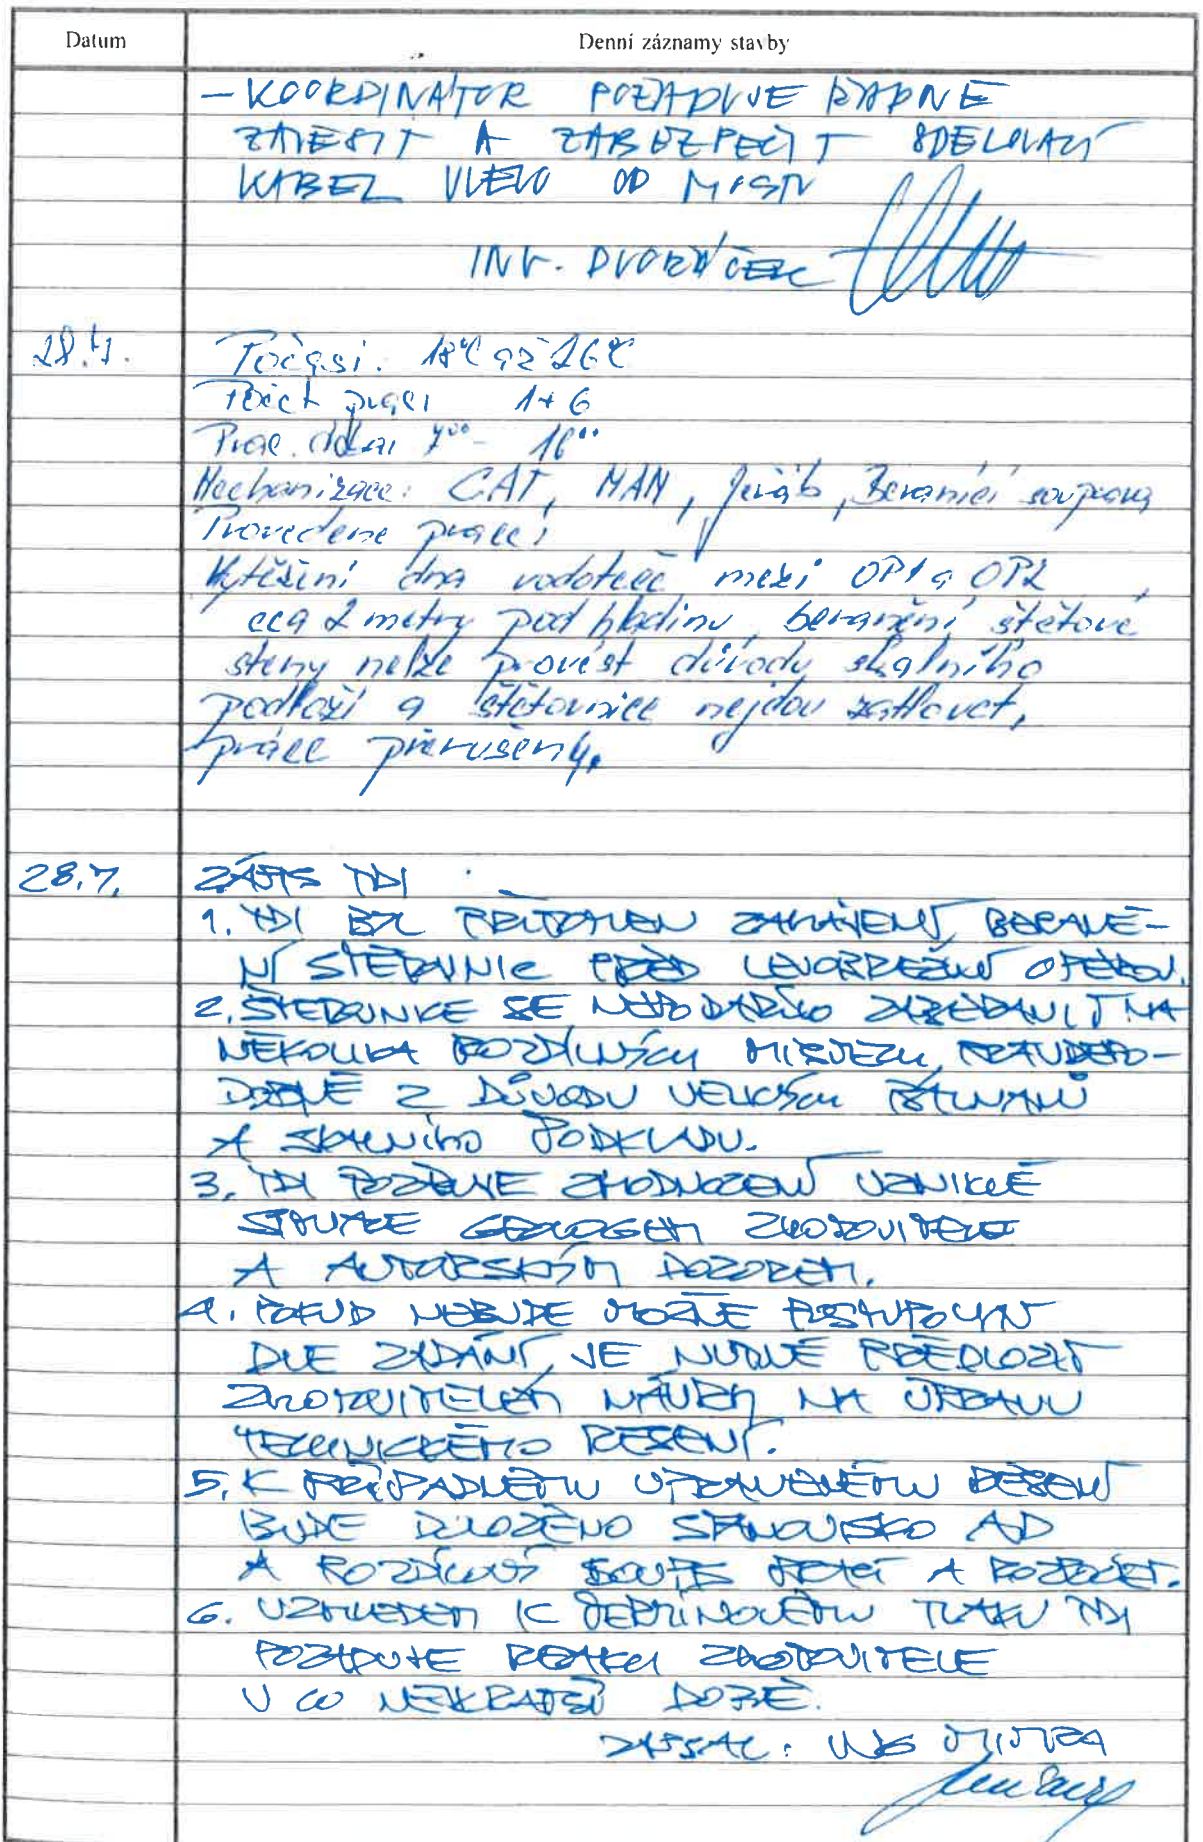 Datum
Denní záznamy stavby
- KOORDINÁTOR POŽADUJE ŘÁDNĚ
ZAVĚSIT A ZABEZPEČIT SDĚLOVACÍ
KABEL VLEVO OD MOSTU
ING. DVOŘÁČEK
28.7. Počasí: 18°C až 26°C
Počet prací 1+6
Prac. doba 7⁰⁰ - 16⁰⁰
Mechanizace: CAT, MAN, jeřáb, Beranící souprava
Provedene prace:
Vytěžení dna vodoteče mezi OP1 a OP2,
cca 2 metry pod hladinu, beranění štětové
steny nelze provést důvody skalního
podloží a štětovnice nejdou zatlouct,
práce přerušeny.
28.7. ZÁPIS TDI
1. TDI BYL PŘÍTOMEN ZAHÁJENÍ BERANĚ-
NÍ ŠTĚTOVNIC PŘED LEVOBŘEŽNÍ OPĚROU.
2. ŠTĚTOVNICE SE NEPODAŘILO ZABERANIT NA
NĚKOLIKA ROZDÍLNÝCH MÍSTECH, PRAVDĚPO-
DOBNĚ Z DŮVODU VELKÝCH BALVANŮ
A SKALNÍHO PODKLADU.
3. TDI POŽADUJE ZHODNOCENÍ VZNIKLÉ
SITUACE GEOLOGEM ZHOTOVITELE
A AUTORSKÝM DOZOREM.
4. POKUD NEBUDE MOŽNÉ POSTUPOVAT
DLE ZADÁNÍ, JE NUTNÉ PŘEDLOŽIT
ZHOTOVITELEM NÁVRH NA ÚPRAVU
TECHNICKÉHO ŘEŠENÍ.
5. K PŘÍPADNÉMU UPRAVENÉMU ŘEŠENÍ
BUDE DOLOŽENO STANOVISKO AD
A ROZDÍLOVÝ SOUPIS PRACÍ A ROZPOČET.
6. VZHLEDEM K TERMÍNOVÉMU TLAKU TDI
POŽADUJE REAKCI ZHOTOVITELE
V CO NEJKRATŠÍ DOBĚ.
ZAPSAL: ING